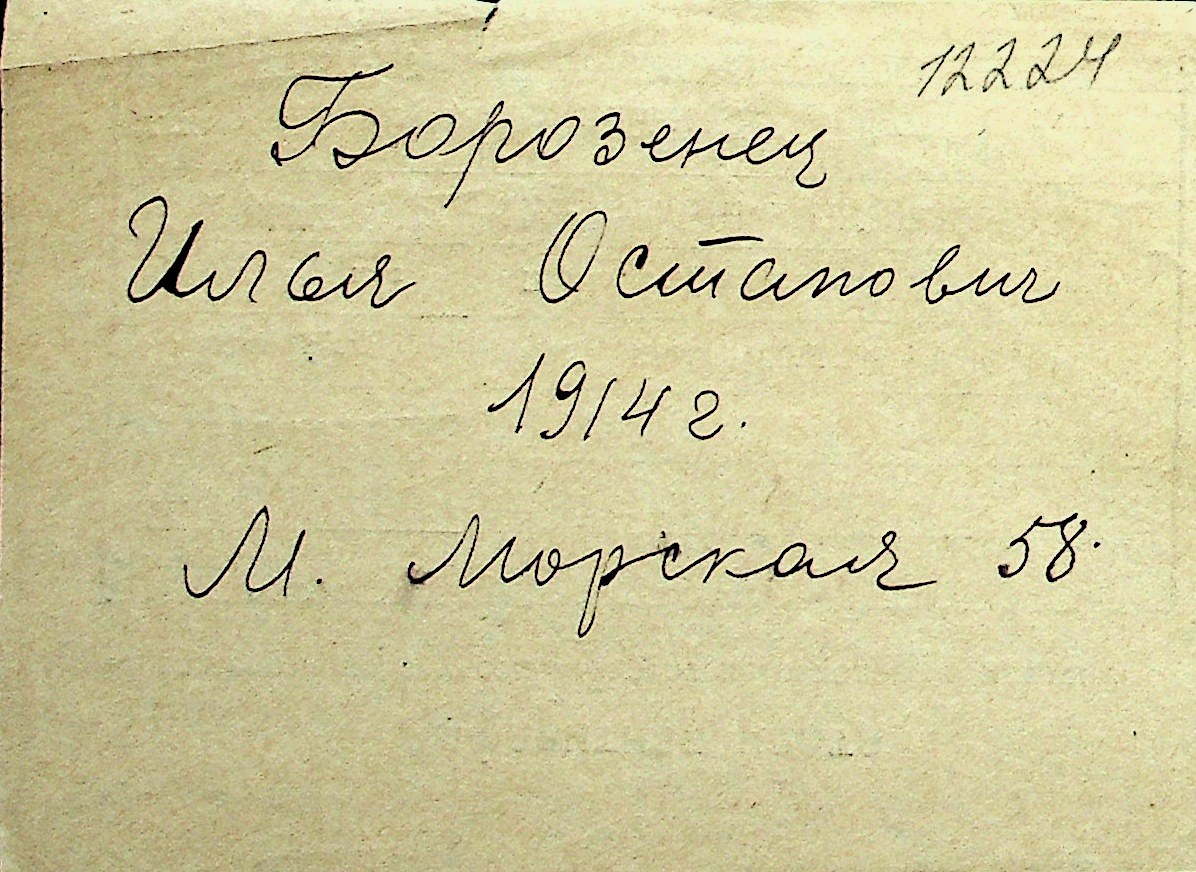 12224
Борозенец
Илья Остапович
1914 г.
М. Морская 58.